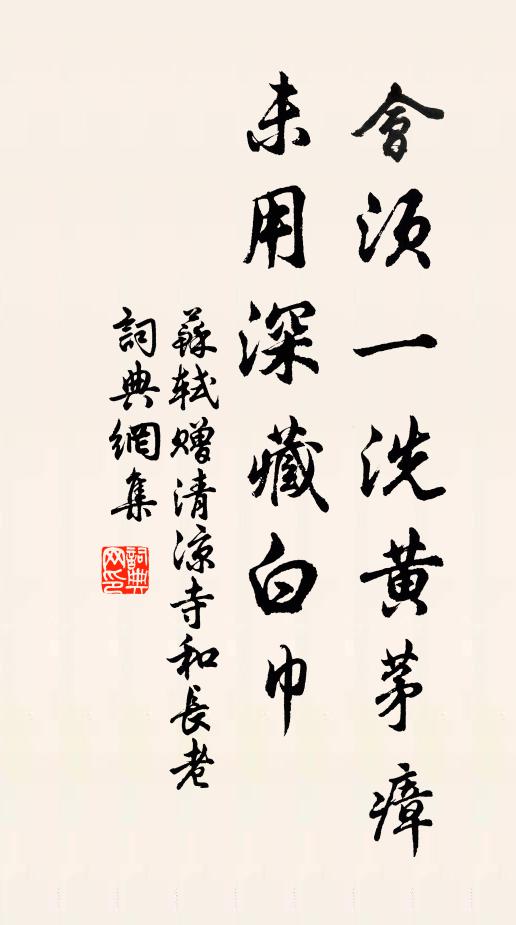 會須一洗黃茅瘴
未用深藏白巾
蘇軾贈清涼寺和長老
詞典網集
詞典网印